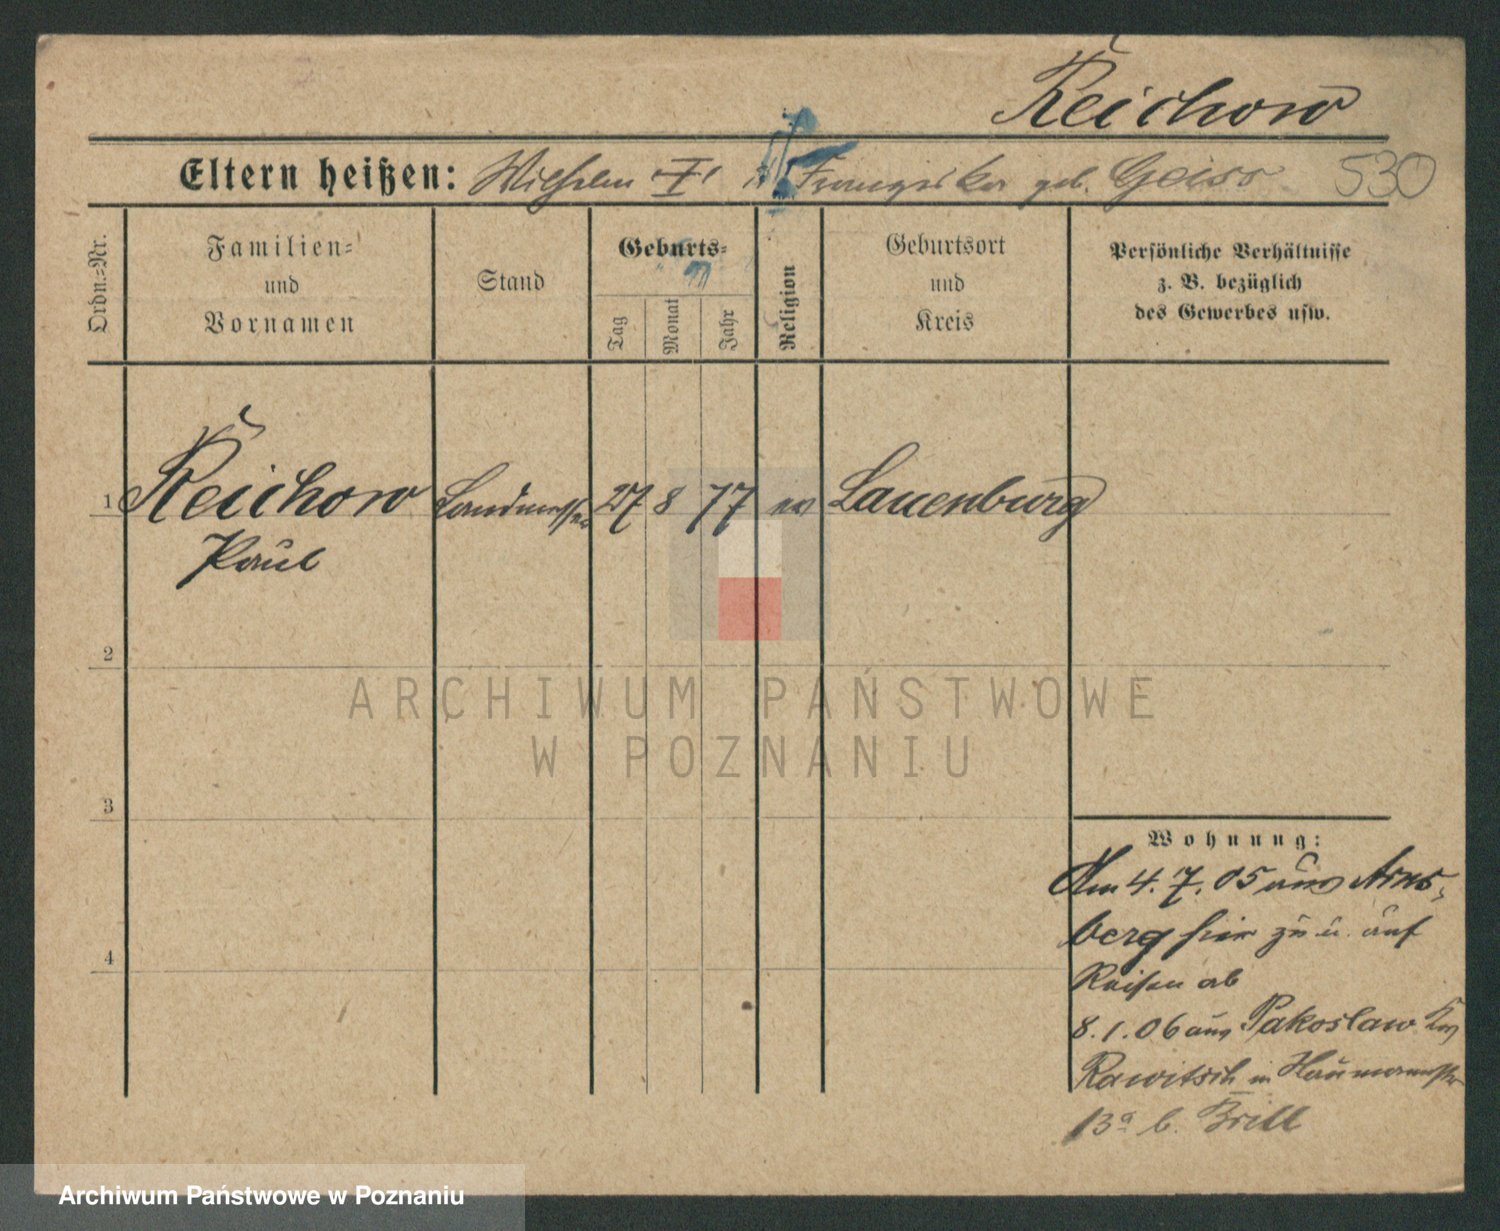 Reichow
Eltern heißen: Wilhelm † u. Franziska geb. Geiss 530
Ordn.-Nr.
Familien-
und
Vornamen
Stand
Geburts-
Tag
Monat
Jahr
Religion
Geburtsort
und
Kreis
Persönliche Verhältnisse
z. B. bezüglich
des Gewerbes usw.
1 Reichow Landmesser 27 8 77 ev Lauenburg
Paul
2
ARCHIWUM PAŃSTWOWE
W POZNANIU
3
Wohnung:
Am 4. 7. 05 aus Arns-
berg hier zu u. auf
4
Reisen ab
8. 1. 06 aus Pakoslaw Krs
Rawitsch in Haumannstr
13a b. Brill
Archiwum Państwowe w Poznaniu